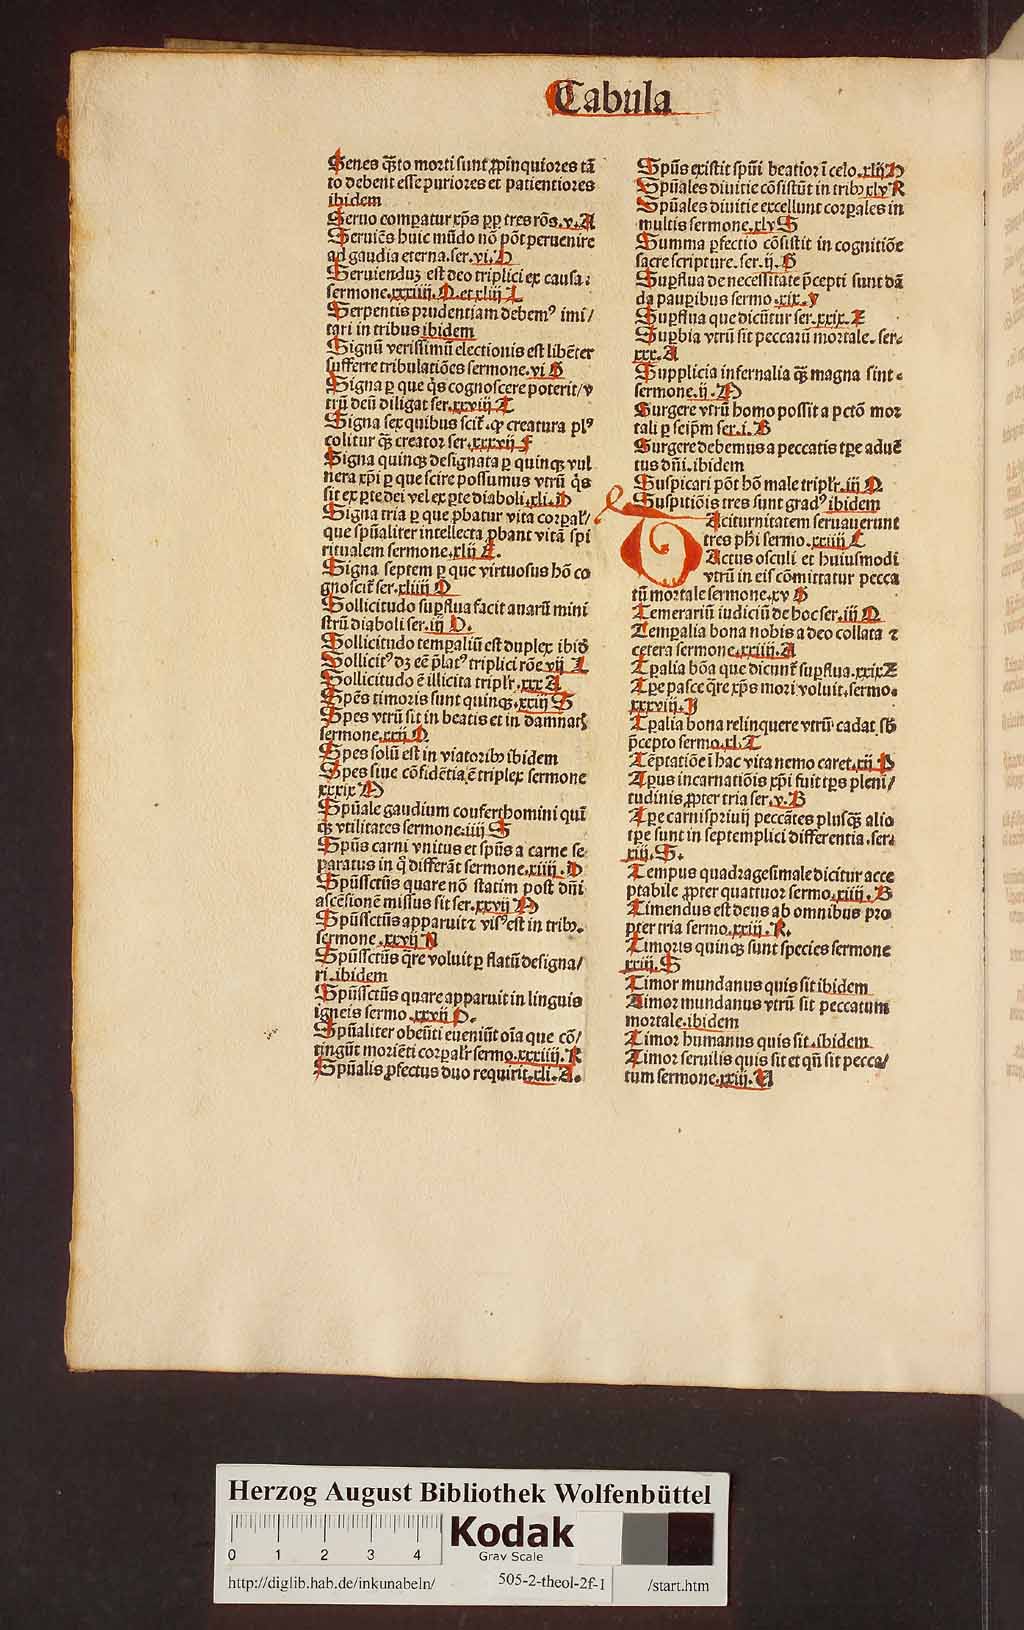 Tabula
Senes q̃to morti sunt ꝓpinquiores tã
to debent esse puriores et patientiores
ibidem
Seruo compatur xp̃s ꝓp tres rõs .v. A
Seruiẽs huic mũdo nõ põt peruenire
ad gaudia eterna. ser. vi. H
Seruienduȝ est deo triplici ex causa:
sermone. xxxiiij. et xliij L
Serpentis prudentiam debemꝰ imi/
tari in tribus ibidem
Signũ verissimũ electionis est libẽter
sufferre tribulatiões sermone. vi G
Signa ꝑ que q̃s cognoscere poterit/ v
trũ deũ diligat ser. xxviij T
Signa sex quibus scit̃. ꝙ creatura plꝰ
colitur q̃ȝ creator ser. xxxvij F
Signa quinqȝ designata ꝑ quinqȝ vul
nera xp̃i ꝑ que scire possumus vtrũ q̃s
sit ex ꝑte dei vel ex ꝑte diaboli. xli. D
Signa tria ꝑ que ꝓbatur vita corꝑal̃/
que spũaliter intellecta ꝓbant vitã spi
ritualem sermone. xlij E.
Signa septem ꝑ que virtuosus hõ co
gnoscit̃ ser. xliiij
Sollicitudo suꝑflua facit auarũ mini
strũ diaboli ser. iij
Sollicitudo temꝑaliũ est duplex ibid̃
Sollicitꝰ dȝ eẽ p̃latꝰ triplici rõe vij L
Sollicitudo ẽ illicita tripl̃r. xxx A
Spẽs timoris sunt quinqȝ. xxiij S
Spes vtrũ sit in beatis et in damnatꝭ
sermone. xxij
Spes solũ est in viatoribꝰ ibidem
Spes siue cõfidẽtia ẽ triplex sermone
xxxix
Spũale gaudium confert homini quĩ
qȝ vtilitates sermone. iiij S
Spũs carni vnitus et spũs a carne se
paratus in q̃ differãt sermone. xiiij. D
Spũssctũs quare nõ statim post dñi
ascẽsionẽ missus sit ser. xxvij
Spũssctũs apparuit ⁊ visꝰ est in tribꝰ.
sermone. xxvij N
Spũssctũs q̃re voluit ꝑ flatũ designa/
ri. ibidem
Spũssctũs quare apparuit in linguis
igneis sermo. xxvij P.
Spũaliter obeũti eueniũt oĩa que cõ/
tingũt moriẽti corꝑalr̃ sermo. xxxiiij. R
Spũalis ꝓfectus duo requirit. xli. A.
Spũs existit spũi beatior ĩ celo. xliij
Spũales diuitie cõsistũt in tribꝰ xlv R
Spũales diuitie excellunt corꝑales in
multis sermone. xlv S
Summa ꝑfectio cõsistit in cognitiõe
sacre scripture. ser. ij. G
Suꝑflua de necessitate p̃cepti sunt dã
da pauꝑibus sermo. xix. V
Suꝑflua que dicũtur ser. xxix. E
Suꝑbia vtrũ sit peccatũ mortale. ser.
xxx. A
Supplicia infernalia q̃ȝ magna sint.
sermone. ij.
Surgere vtrũ homo possit a petõ mor
tali ꝑ seip̃m ser. i. B
Surgere debemus a peccatis tꝑe aduẽ
tus dñi. ibidem
Suspicari põt hõ male tripl̃r. iij
Suspitiõis tres sunt gradꝰ ibidem
Taciturnitatem seruauerunt
tres phĩ sermo. xxiiij C
Tactus osculi et huiusmodi
vtrũ in eis cõmittatur pecca
tũ mortale sermone. xv G
Temerariũ iudiciũ de hoc ser. iij
Temꝑalia bona nobis a deo collata ⁊
cetera sermone. xxiiij. A
Tꝑalia bõa que dicunt̃ suꝑflua. xxix E
Tꝑe pasce q̃re xp̃s mori voluit. sermo.
xxxviij. I
Tꝑalia bona relinquere vtrũ cadat sb̃
p̃cepto sermo. xl. T
Tẽptatiõe ĩ hac vita nemo caret. xij
Tꝑus incarnatiõis xp̃i fuit tꝑs pleni/
tudinis ꝓpter tria ser. v. B
Tꝑe carnispriuij peccãtes plusq̃ȝ alio
tꝑe sunt in septemplici differentia. ser.
xiij. S.
Tempus quadragesimale dicitur acce
ptabile ꝓpter quattuor sermo. xiiij. B
Timendus est deus ab omnibus pro
pter tria sermo. xxiij. R.
Timoris quinqȝ sunt species sermone
xxiij. S
Timor mundanus quis sit ibidem
Timor mundanus vtrũ sit peccatum
mortale. ibidem
Timor humanus quis sit. ibidem
Timor seruilis quis sit et qñ sit pecca/
tum sermone. xxiij.
Herzog August Bibliothek Wolfenbüttel
0 1 2 3 4
Kodak
Gray Scale
http://diglib.hab.de/inkunabeln/ 505-2-theol-2f-1 /start.htm